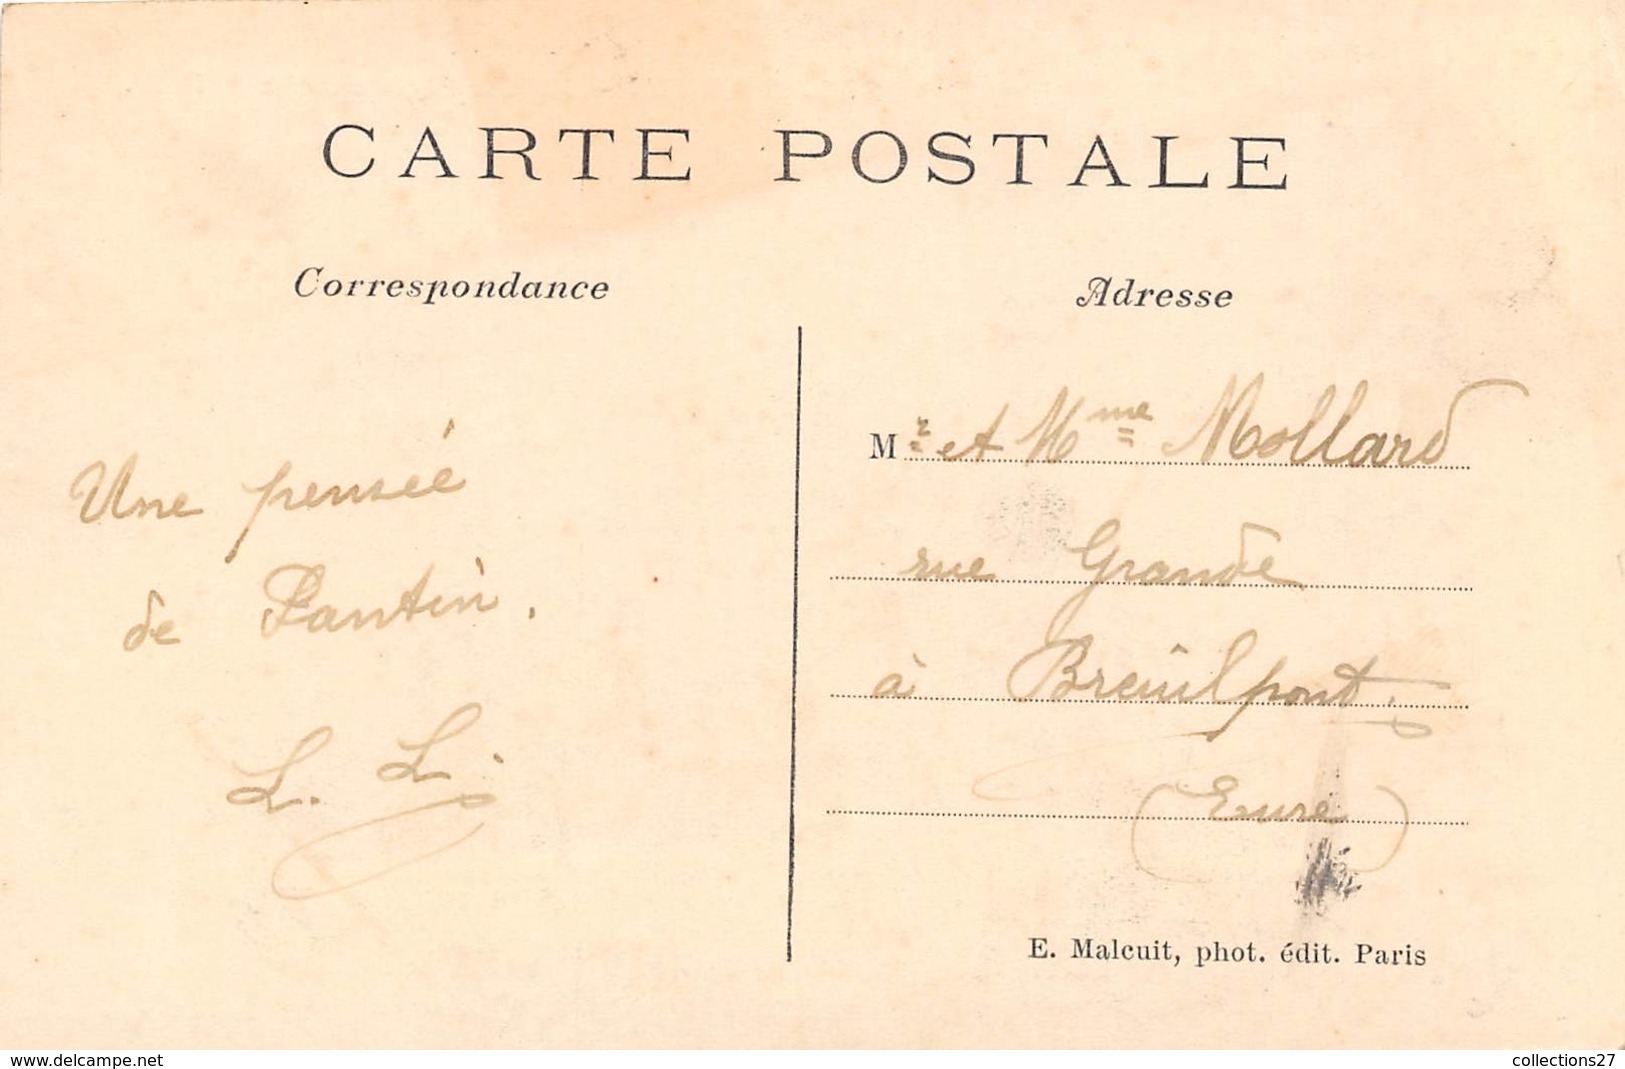 CARTE POSTALE
Correspondance
Une pensée
de Pantin.
L. L.
Adresse
Mr et Mme Mollard
rue Grande
à Breuilpont.
(Eure)
E. Malcuit, phot. édit. Paris
www.delcampe.net
collections27